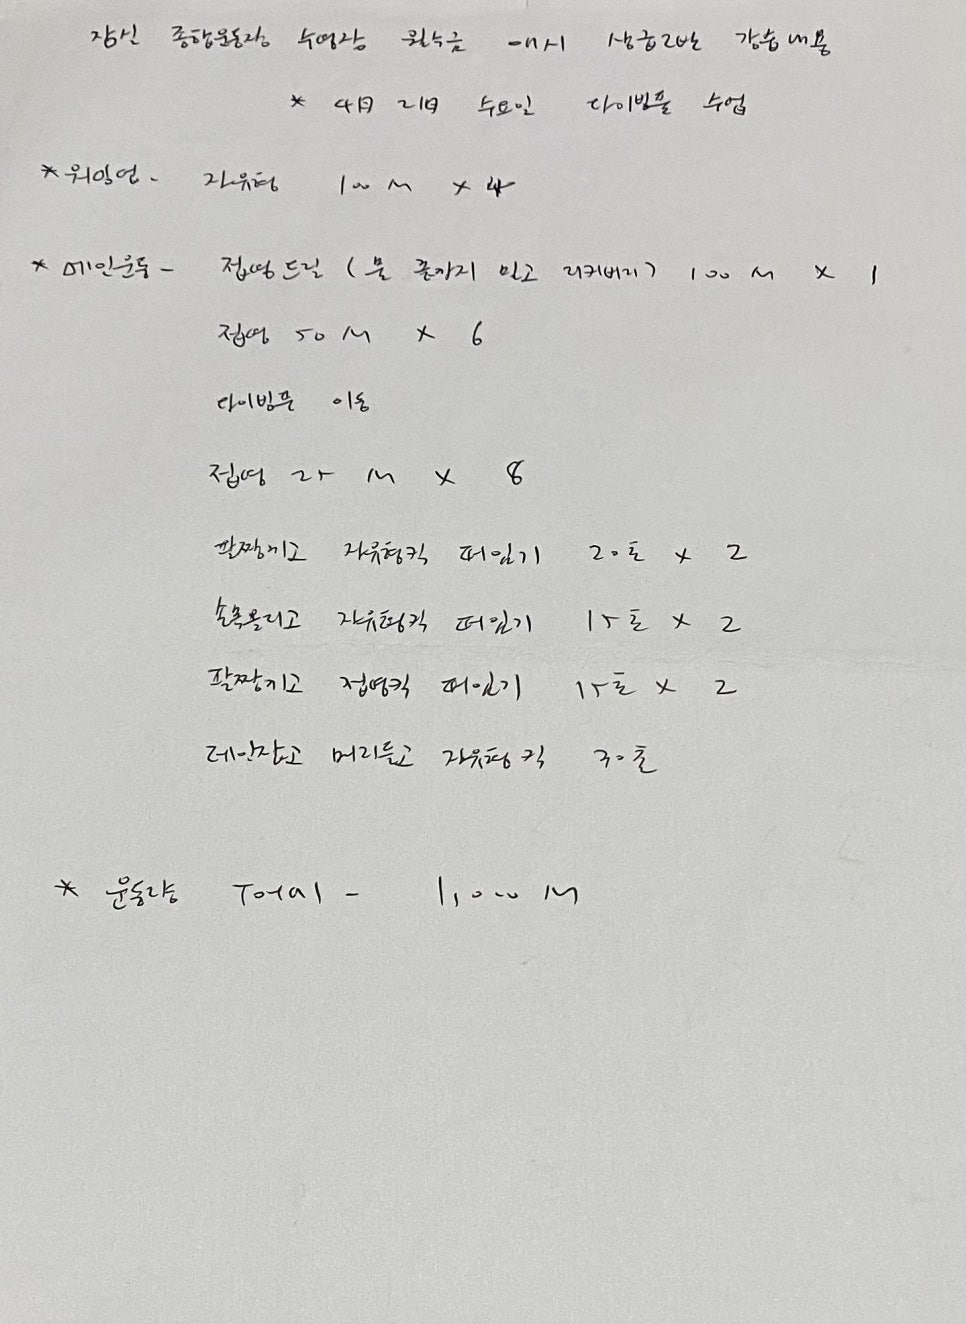 잠실 종합운동장 수영장 월수금 시 상급2반 강습내용
* 4月 21日 수요일 다이빙풀 수업
* 워밍업 - 자유형 100 M x 4
* 메인운동 - 접영드릴 (물 끝까지 밀고 리커버리) 100 M x 1
접영 50 M x 6
다이빙풀 이동
접영 25 M x 8
팔짱끼고 자유형킥 떠있기 20초 x 2
손목올리고 자유형킥 떠있기 15초 x 2
팔짱끼고 접영킥 떠있기 15초 x 2
레인잡고 머리들고 자유형킥 30초
* 운동량 Total - 1,000 M